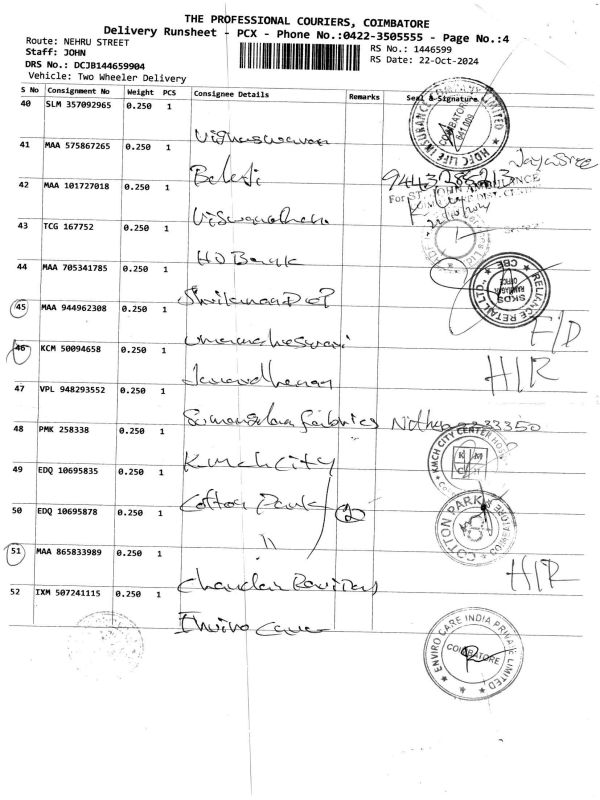 THE PROFESSIONAL COURIERS, COIMBATORE
Delivery Runsheet - PCX - Phone No.:0422-3505555 - Page No.:4
Route: NEHRU STREET
RS No.: 1446599
Staff: JOHN
RS Date: 22-Oct-2024
DRS No.: DCJB144659904
Vehicle: Two Wheeler Delivery
S No Consignment No Weight PCS Consignee Details Remarks Seal & Signature
40 SLM 357092965 0.250 1
HDFC LIFE INSURANCE COMPANY LIMITED
COIMBATORE
641 009
41 MAA 575867265 0.250 1
Balaji
Jayasree
42 MAA 101727018 0.250 1
For ST. JOHN AMBULANCE
43 TCG 167752 0.250 1
HD Bank
44 MAA 705341785 0.250 1
RELIANCE RETAIL LTD., CBE
45 MAA 944962308 0.250 1
Umamaheswari
F/D
46 KCM 50094658 0.250 1
Janardhanan
H/R
47 VPL 948293552 0.250 1
48 PMK 258338 0.250 1
KMCH City
KMCH CITY CENTER
K M
C H
49 EDQ 10695835 0.250 1
Cotton Park
50 EDQ 10695878 0.250 1
"
COTTON PARK
COIMBATORE
51 MAA 865833989 0.250 1
H/R
52 IXM 507241115 0.250 1
Enviro Care
ENVIRO CARE INDIA PRIVATE LIMITED
COIMBATORE